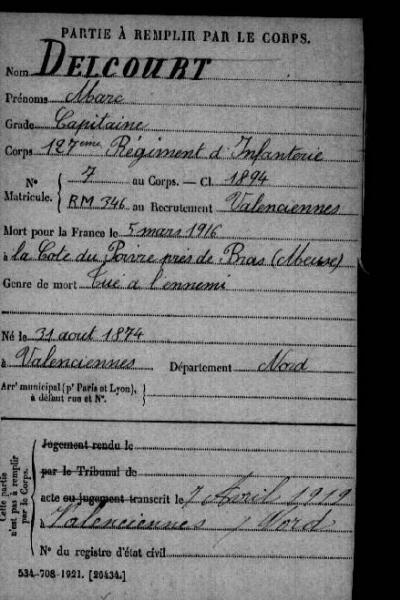 PARTIE À REMPLIR PAR LE CORPS.
Nom DELCOURT
Prénoms Marc
Grade Capitaine
Corps 127eme Régiment d'Infanterie
N° 7 au Corps. — Cl. 1894
Matricule. RM 346 au Recrutement Valenciennes
Mort pour la France le 5 mars 1916
à la Cote du Poivre près de Bras (Meuse)
Genre de mort Tué à l'ennemi
Né le 31 aout 1874
à Valenciennes Département Nord
Arrt municipal (pr Paris et Lyon),
à défaut rue et N°.
Cette partie
n'est pas à remplir
par le Corps.
Jugement rendu le
par le Tribunal de
acte ou jugement transcrit le 7 Avril 1919
à Valenciennes / Nord
N° du registre d'état civil
534-708-1921. [26434.]